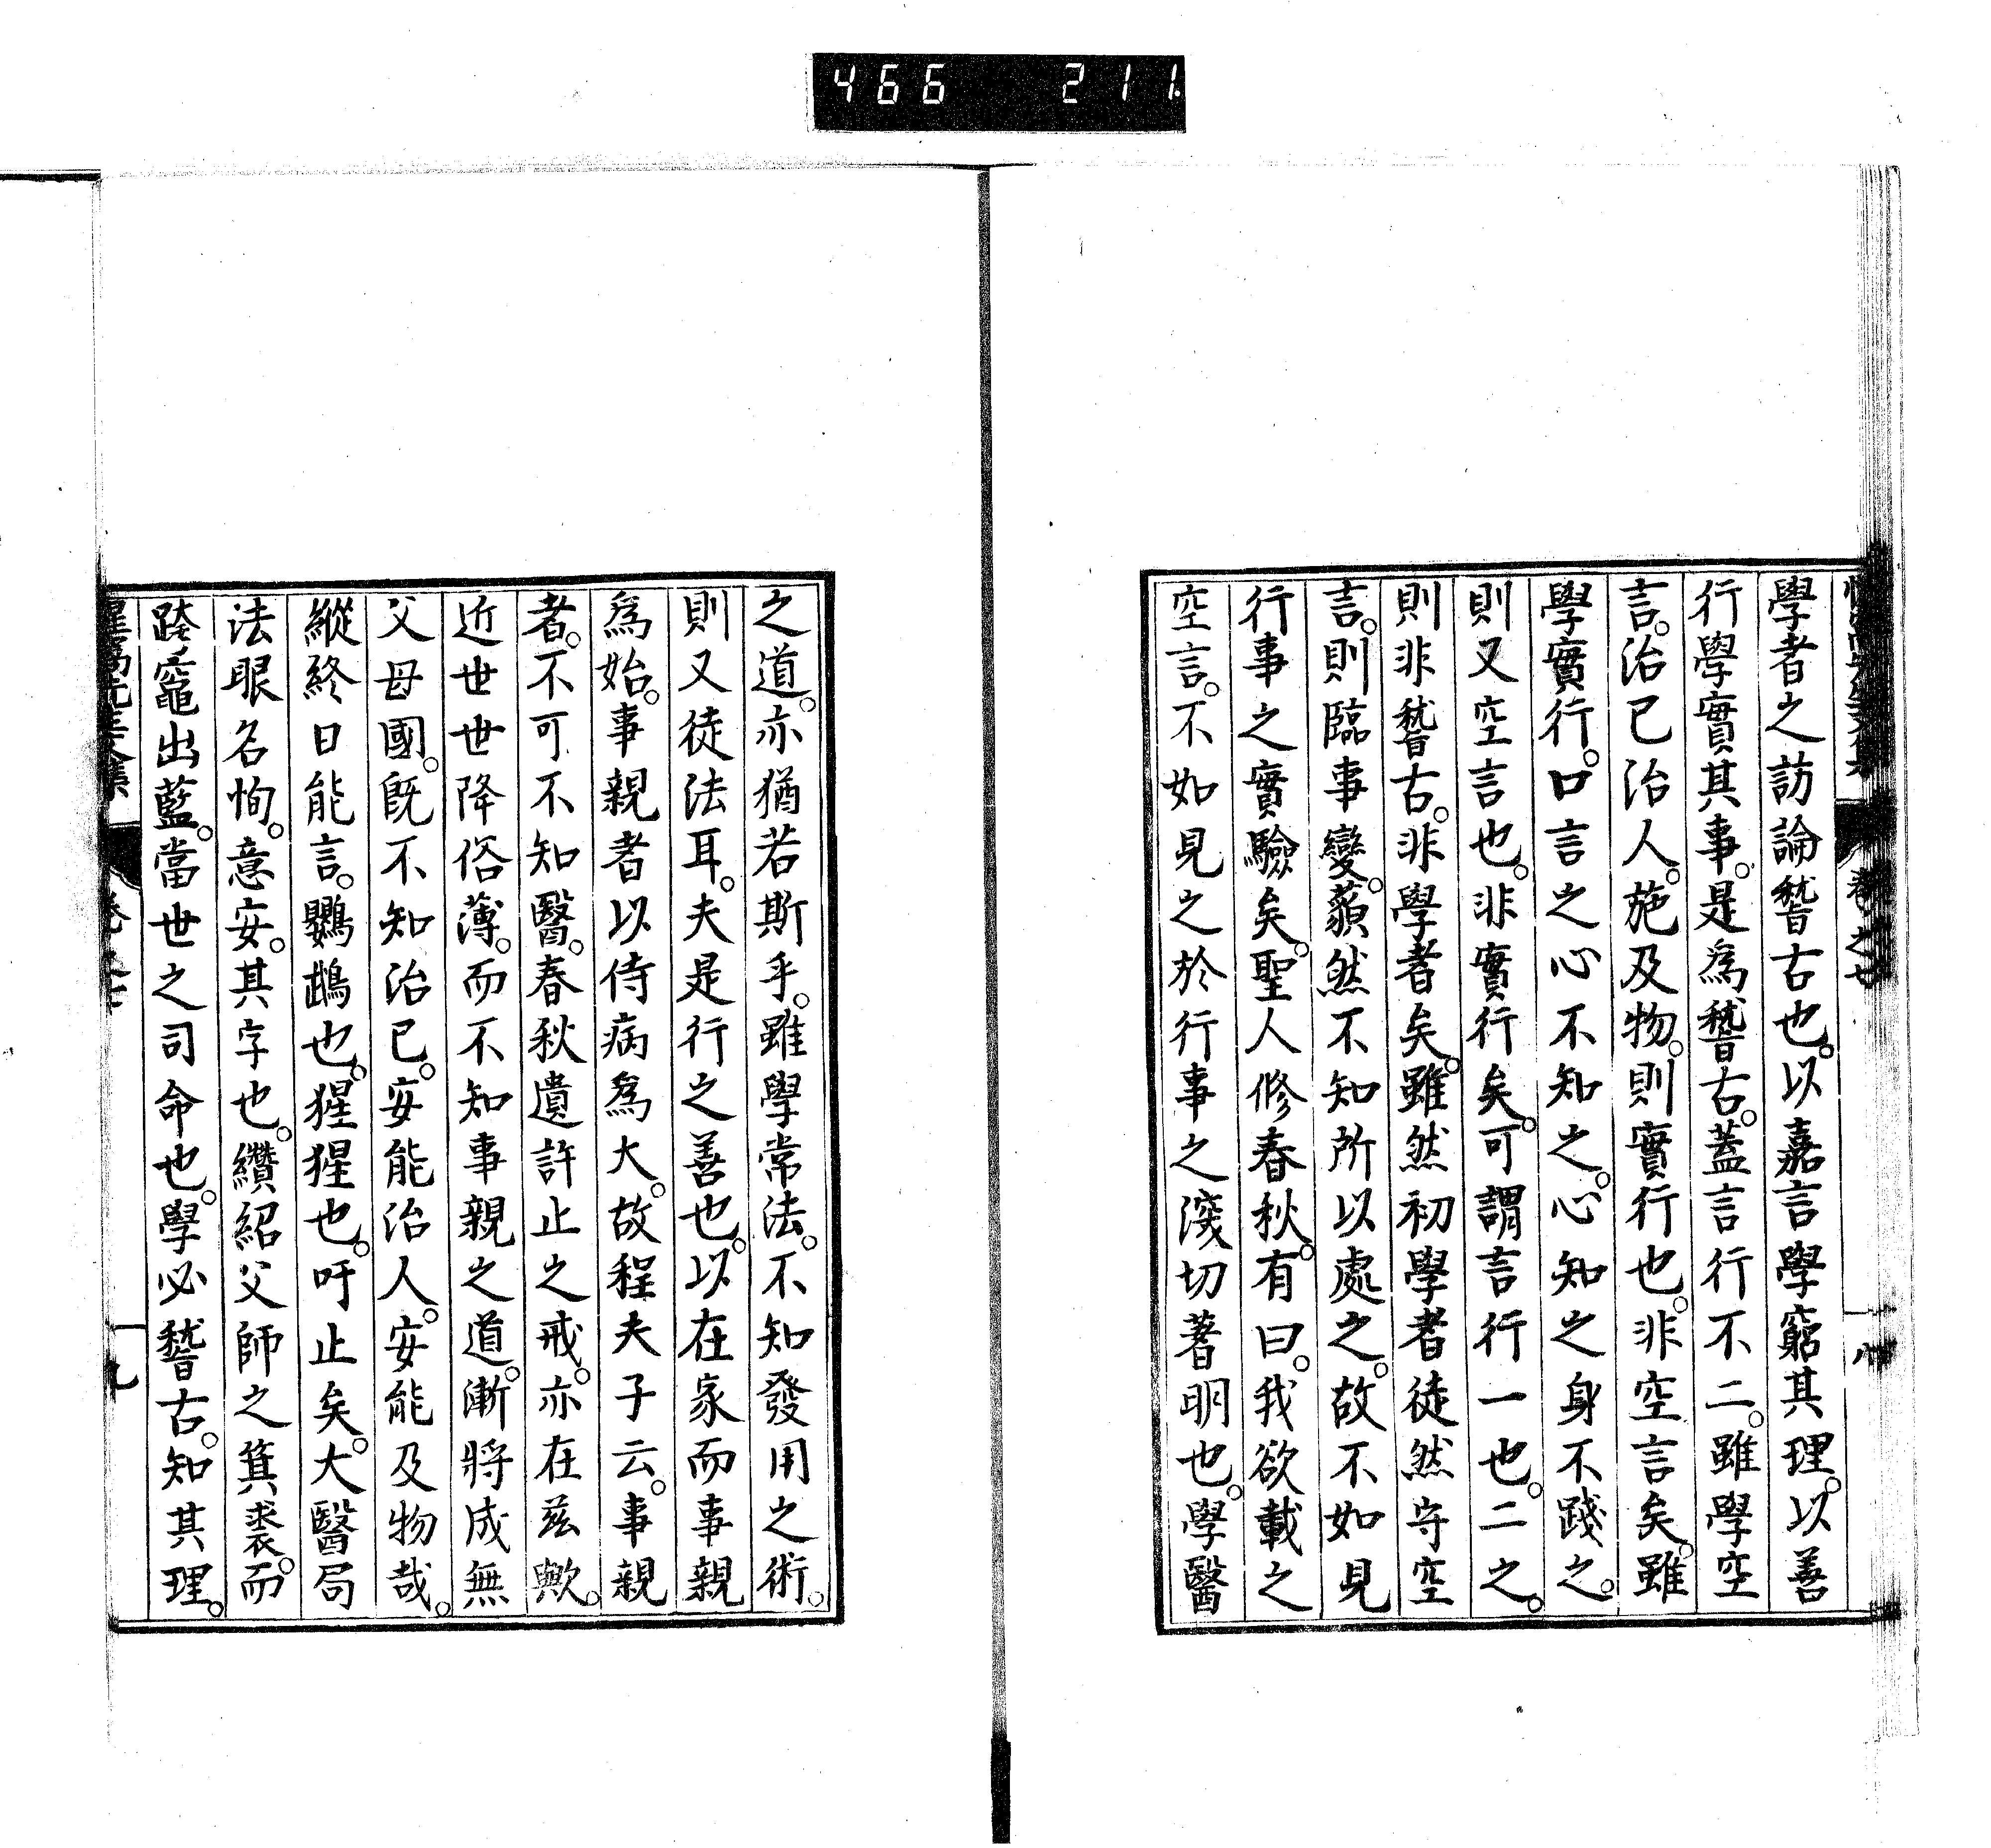 466 211.
卷之七 八
學者之訪論稽古也。以嘉言學窮其理。以善
行學實其事。是爲稽古。蓋言行不二。雖學空
言。治已治人。施及物。則實行也。非空言矣。雖
學實行。口言之心不知之。心知之身不踐之。
則又空言也。非實行矣。可謂言行一也。二之。
則非稽古。非學者矣。雖然初學者徒然守空
言。則臨事變。藐然不知所以處之。故不如見
行事之實驗矣。聖人修春秋。有曰。我欲載之
空言。不如見之於行事之深切著明也。學醫
之道。亦猶若斯乎。雖學常法。不知發用之術。
則又徒法耳。夫是行之善也。以在家而事親
爲始。事親者以侍病爲大。故程夫子云。事親
者。不可不知醫。春秋遺許止之戒。亦在玆歟。
近世世降俗薄。而不知事親之道。漸將成無
父母國。旣不知治已。安能治人。安能及物哉。
縱終日能言。鸚鵡也。猩猩也。吁止矣。大醫局
法眼名恂。意安。其字也。纘紹父師之箕裘。而
跨竈出藍。當世之司命也。學必稽古。知其理。
惺窩先生文集 卷之七 九